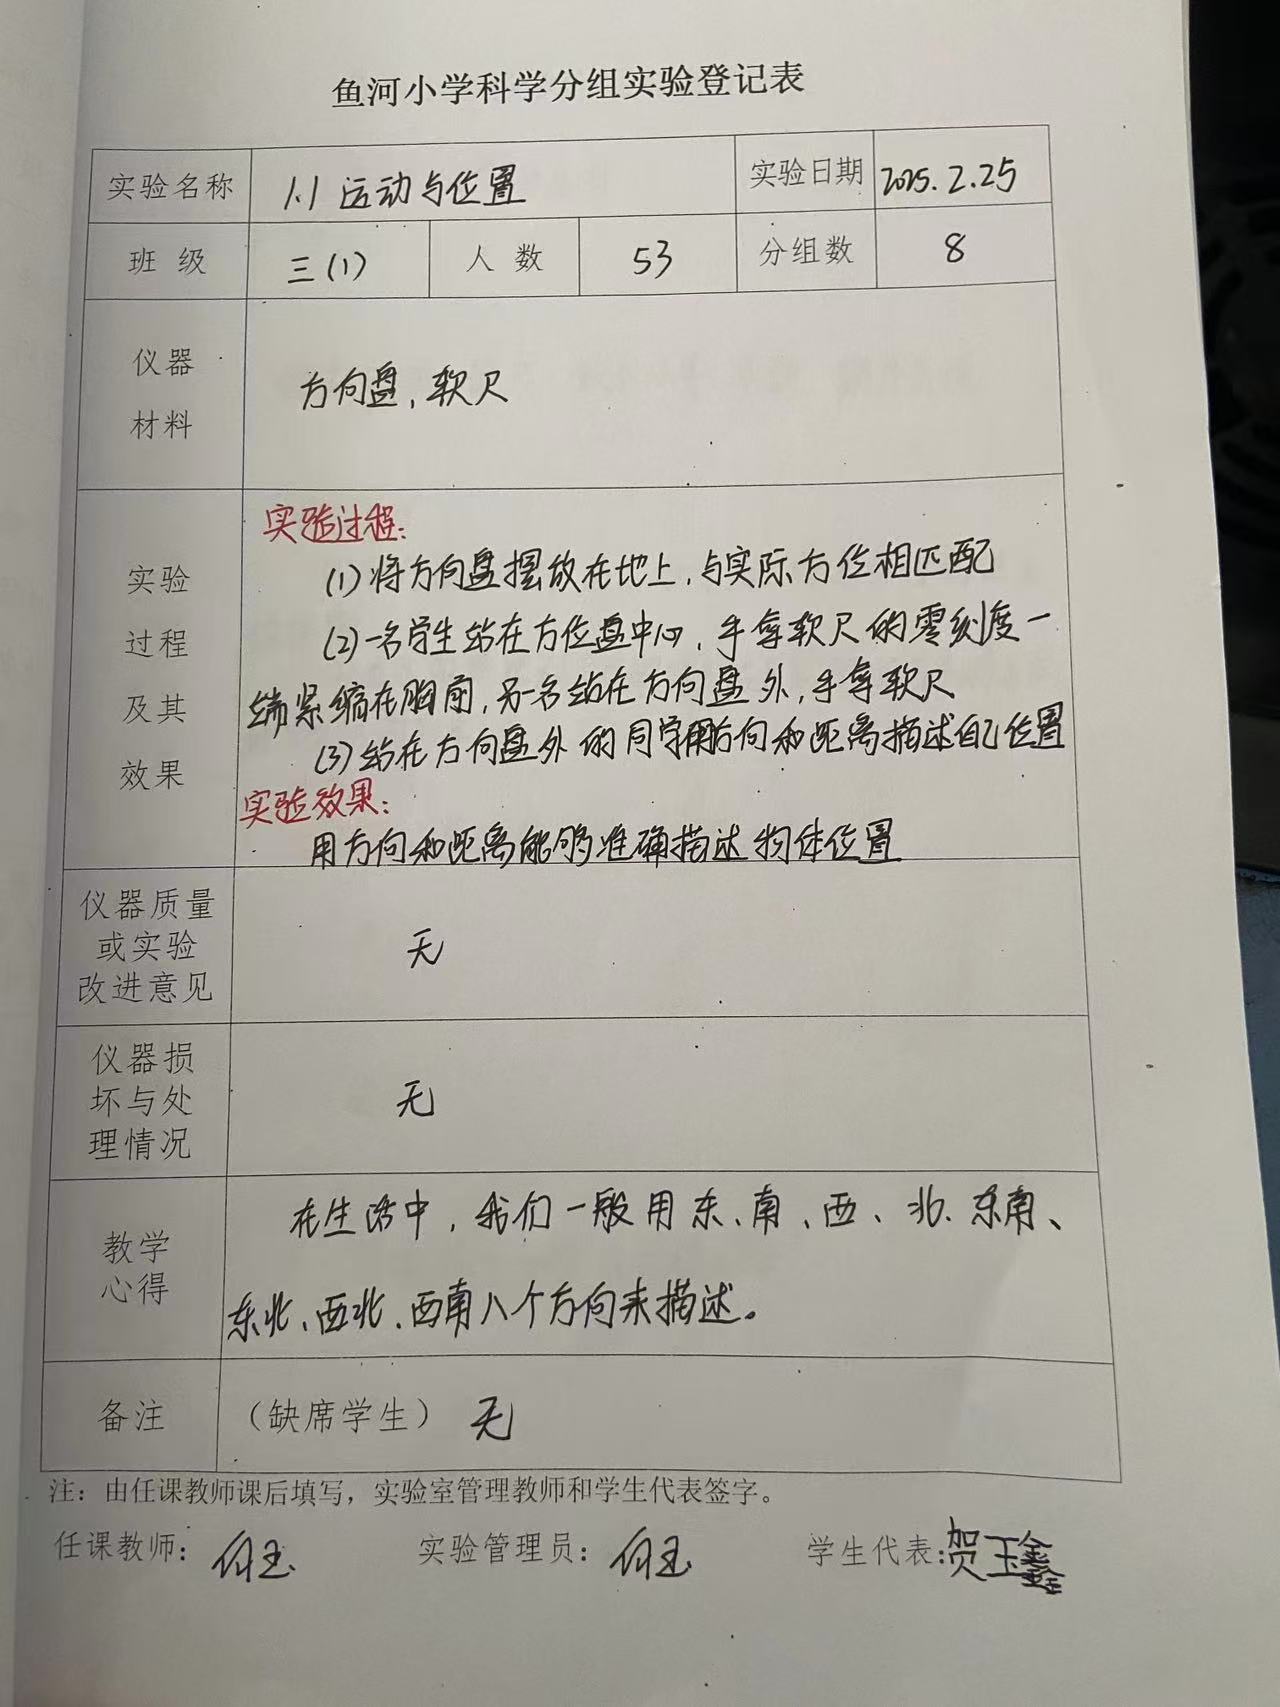 鱼河小学科学分组实验登记表
实验名称 1.1 运动与位置 实验日期 2025.2.25
班级 三(1) 人数 53 分组数 8
仪器
材料
方向盘, 软尺
实验
过程
及其
效果
实验过程:
(1)将方向盘摆放在地上,与实际方位相匹配
(2)一名学生站在方位盘中心,手拿软尺的零刻度一
端紧缩在胸前,另一名站在方向盘外,手拿软尺
(3)站在方向盘外的同学用方向和距离描述自己位置
实验效果:
用方向和距离能够准确描述物体位置
仪器质量
或实验
改进意见
无
仪器损
坏与处
理情况
无
教学
心得
在生活中,我们一般用东、南、西、北、东南、
东北、西北、西南八个方向来描述。
备注 (缺席学生) 无
注:由任课教师课后填写,实验室管理教师和学生代表签字。
任课教师: 实验管理员: 学生代表:贺玉鑫